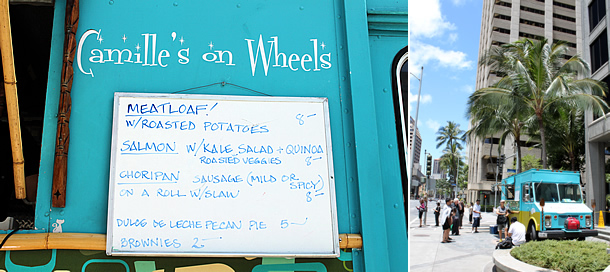 Camille's on Wheels
MEATLOAF!
W/ROASTED POTATOES 8-
SALMON W/KALE, SALAD + QUINOA
ROASTED VEGGIES 8-
CHORIPAN SAUSAGE (MILD OR SPICY)
ON A ROLL W/SLAW 8-
DULCE DE LECHE PECAN PIE 5-
BROWNIES 2-